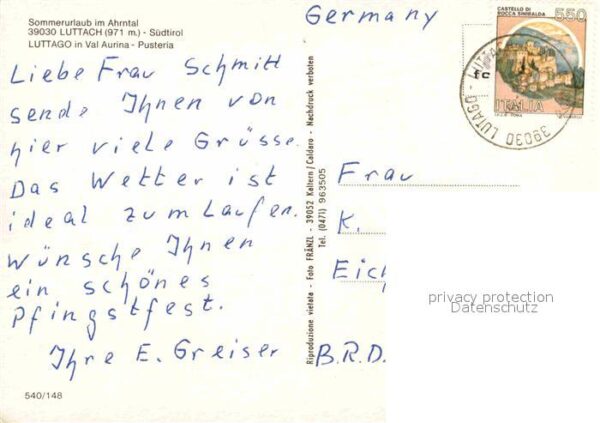 Sommerurlaub im Ahrntal
39030 LUTTACH (971 m.) - Südtirol
LUTTAGO in Val Aurina - Pusteria
Liebe Frau Schmitt
sende Ihnen von
hier viele Grüsse.
Das Wetter ist
ideal zum Laufen.
wünsche Ihnen
ein schönes
Pfingstfest.
Ihre E. Greiser
540/148
Riproduzione vietata - Foto FRÄNZL - 39052 Kaltern/Caldaro - Nachdruck verboten
Tel. (0471) 963505
Germany
CASTELLO DI
ROCCA SINIBALDA
550
ITALIA
39030 LUTAGO - LUTTA
Frau
K.
Eich
B.R.D.
privacy protection
Datenschutz